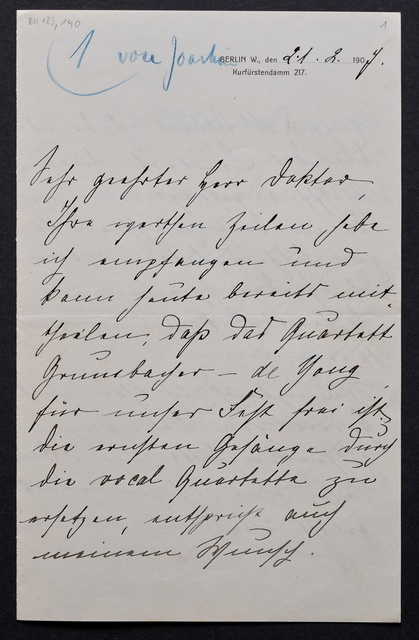 BH 183, 140
1
1 von Joachim
BERLIN W., den 21. 2. 1907.
Kurfürstendamm 217.
Sehr geehrter Herr Doktor,
Ihre werthen Zeilen habe
ich empfangen und
kann heute bereits mit-
theilen, daß das Quartett
Grumbacher – de Yong
für unser Fest frei ist.
die ernsten Gesänge durch
die vocal Quartette zu
ersetzen, entspricht auch
meinem Wunsch.